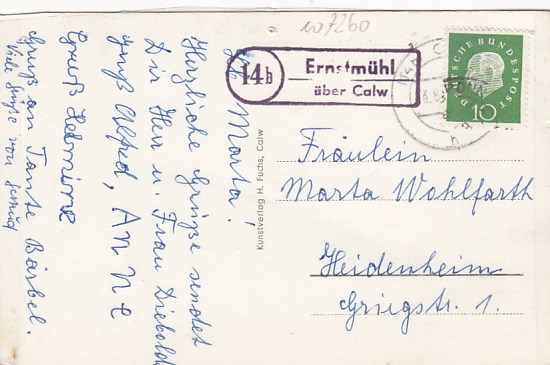 107260
14b
Ernstmühl
über Calw
DEUTSCHE BUNDESPOST
10
Fräulein
Marta Wohlfarth
Heidenheim
Griegstr. 1.
Kunstverlag H. Fuchs, Calw
Lb. Marta!
Herzliche Grüße sendet
Dir Herr u. Frau Diebold
gruß Alfred, ANNE
Gruß Helmine
Gruß an Tante Bärbel.
Viele Grüße von